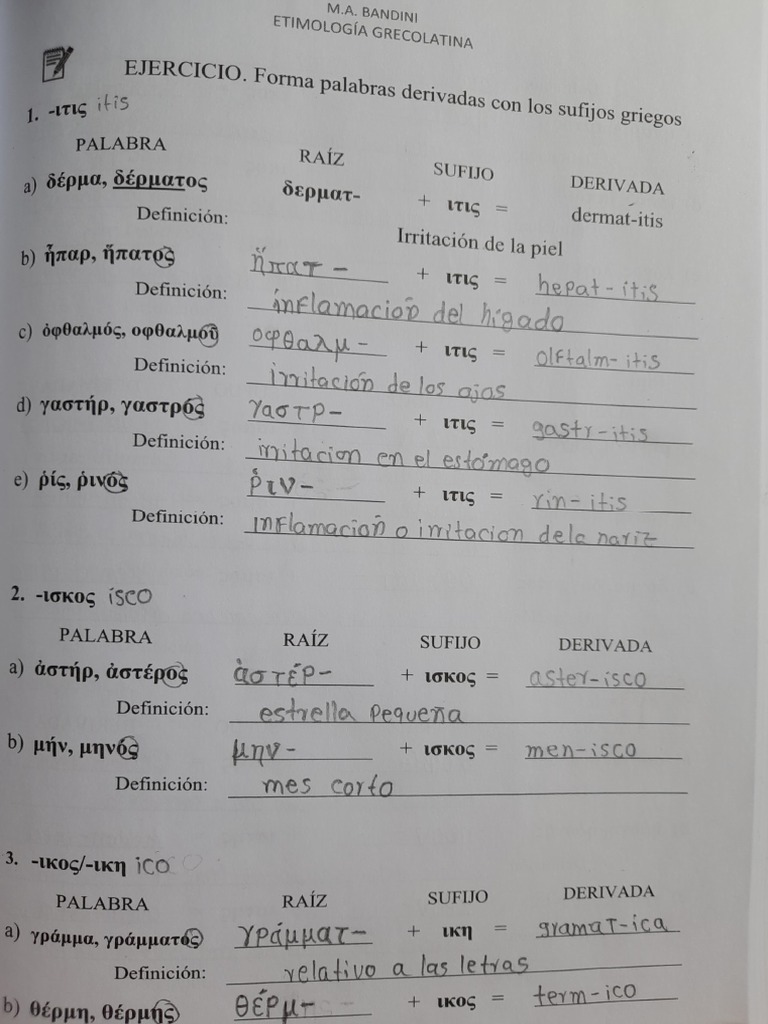 M.A. BANDINI
ETIMOLOGÍA GRECOLATINA
EJERCICIO. Forma palabras derivadas con los sufijos griegos
1. -ιτις itis
PALABRA RAÍZ SUFIJO DERIVADA
a) δέρμα, δέρματος δερματ- + ιτις = dermat-itis
Definición: Irritación de la piel
b) ἧπαρ, ἥπατος ἥπατ- + ιτις = hepat-itis
Definición: inflamación del hígado
c) ὀφθαλμός, οφθαλμοῦ οφθαλμ- + ιτις = olftalm-itis
Definición: irritación de los ojos
d) γαστήρ, γαστρός γαστρ- + ιτις = gastr-itis
Definición: irritacion en el estómago
e) ῥίς, ῥινός ῥιν- + ιτις = rin-itis
Definición: inflamación o irritacion de la nariz
2. -ισκος isco
PALABRA RAÍZ SUFIJO DERIVADA
a) ἀστήρ, ἀστέρος ἀστέρ- + ισκος = aster-isco
Definición: estrella pequeña
b) μήν, μηνός μην- + ισκος = men-isco
Definición: mes corto
3. -ικος/-ικη ico
PALABRA RAÍZ SUFIJO DERIVADA
a) γράμμα, γράμματός γράμματ- + ικη = gramat-ica
Definición: relativo a las letras
b) θέρμη, θέρμης θέρμ- + ικος = term-ico